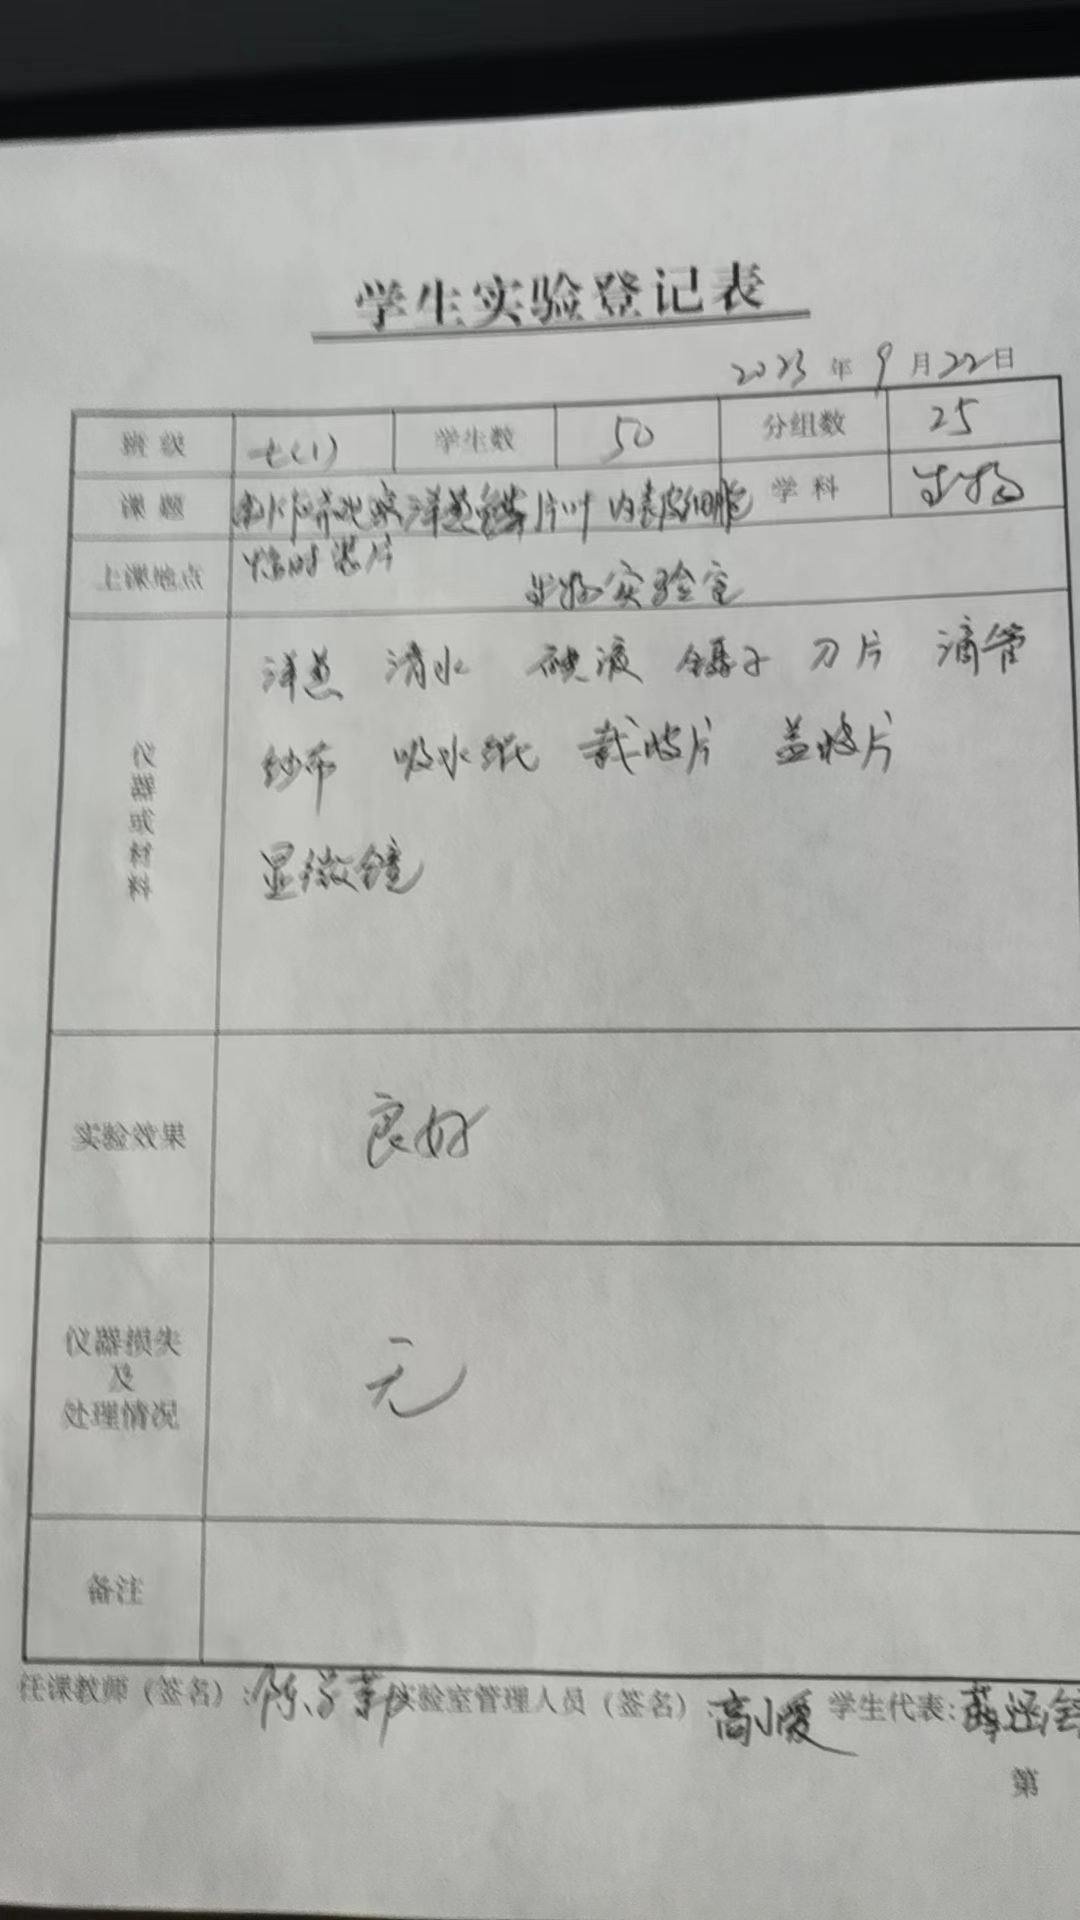 学生实验登记表
2023 年 9 月 22 日
班级 七(1) 学生数 50 分组数 25
课题 制作并观察洋葱鳞片叶内表皮细胞 学科 生物
临时装片
上课地点 生物实验室
洋葱 清水 碘液 镊子 刀片 滴管
仪器及材料 纱布 吸水纸 载玻片 盖玻片
显微镜
实验效果 良好
仪器损失
及 无
处理情况
备注
任课教师（签名）：陈 实验室管理人员（签名）：高小爱 学生代表：薛涵
第